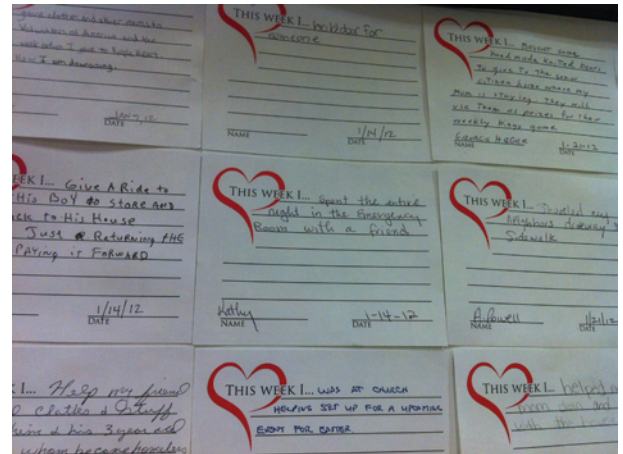 gave clothes and other items to
Volunteers of America and the
How I am downsizing.
JAN 7, 12
DATE
THIS WEEK I... held door for
someone
NAME
1/14/12
DATE
THIS WEEK I... Bought some
handmade knitted
to give to the senior
citizen home where my
Mum is staying. They will
use them as prizes for their
weekly bingo game
NAME
1-21-12
DATE
EEK I... Give A Ride to
His Boy to store AND
ck to His House
Just Returning the
PAYing it Forward
1/14/12
DATE
THIS WEEK I... Spent the entire
night in the Emergency
Room with a friend
Kathy
NAME
1-14-12
DATE
THIS WEEK I... Shoveled my
neighbors driveway
Sidewalk
A. Powell
NAME
1/21/12
DATE
K I... Help my friend
clothes & Stuff
& his 3 year old
whom became homeless
THIS WEEK I... WAS AT CHURCH
HELPING SET UP FOR A UPCOMING
EVENT FOR EASTER.
THIS WEEK I... helped m
mom clean and
with the